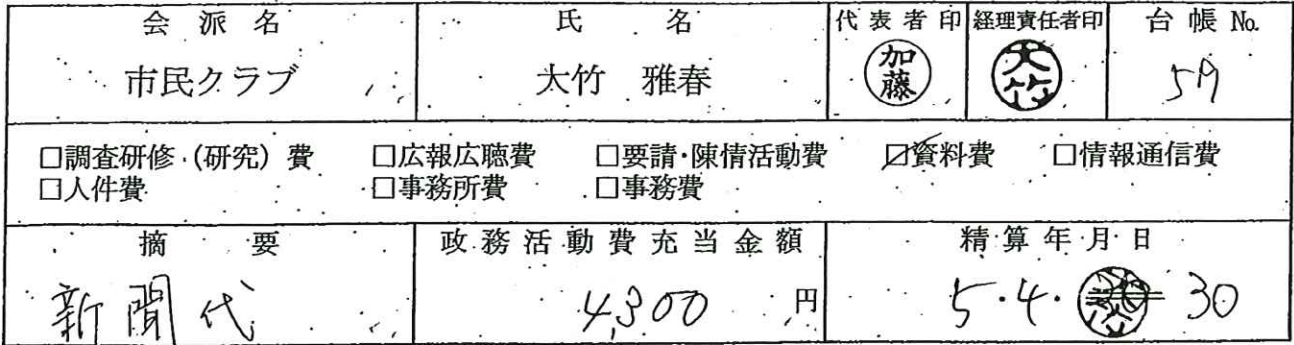 会派名 氏名 代表者印 経理責任者印 台帳No.
市民クラブ 大竹 雅春 加藤 大竹 59
□調査研修(研究)費 □広報広聴費 □要請・陳情活動費 ☑資料費 □情報通信費
□人件費 □事務所費 □事務費
摘要 政務活動費充当金額 精算年月日
新聞代 4,300円 5・4・30